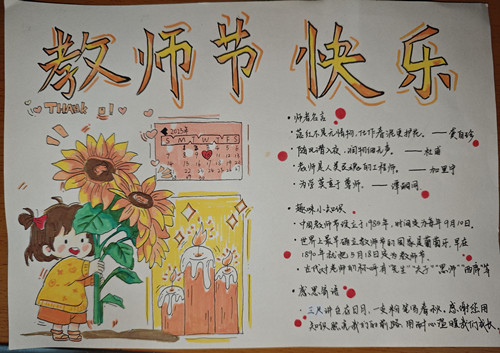 教师节快乐
THANK U!
2023年
S M T W T F S
•师者名言
•落红不是无情物,化作春泥更护花。——龚自珍
•随风潜入夜,润物细无声。——杜甫
•教师是人类灵魂的工程师。——加里宁
•为学莫重于尊师。——谭嗣同
•趣味小知识
•中国教师节设立于1985年,时间定为每年9月10日。
•世界上最早确立教师节的国家是葡萄牙,早在
1899年就把5月18日定为教师节。
•古代对老师的称呼有"先生""夫子""恩师""西席"等
•感恩寄语
三尺讲台存日月,一支粉笔写春秋。感谢您用
知识照亮我们的前路,用耐心温暖我们成长。